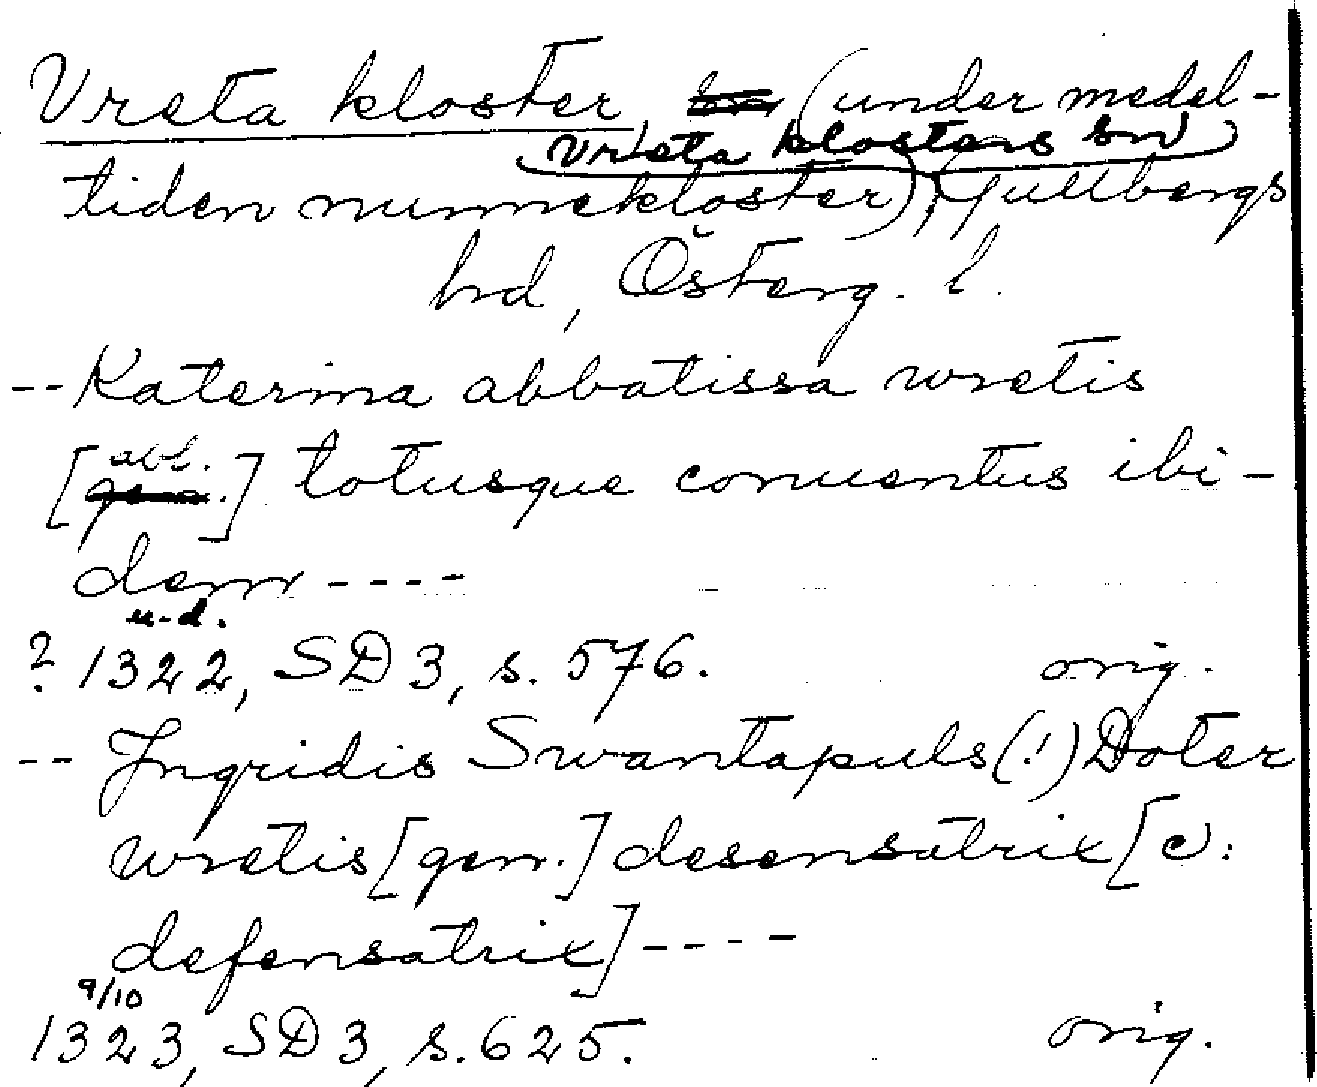 Vreta kloster, (under medel-
Vreta klosters sn
tiden nunnekloster), Gullbergs
hd, Österg. l.
-- Katerina abbatissa wretis
abl.
[gen.] totusque conuentus ibi-
dem ----
u.d.
? 1322, SD 3, s. 576. orig.
-- Jngridis Swantapuls(!) Doter
wretis [gen.] desensatrix [ɔ:
defensatrix] ----
9/10
1323, SD 3, s. 625. orig.